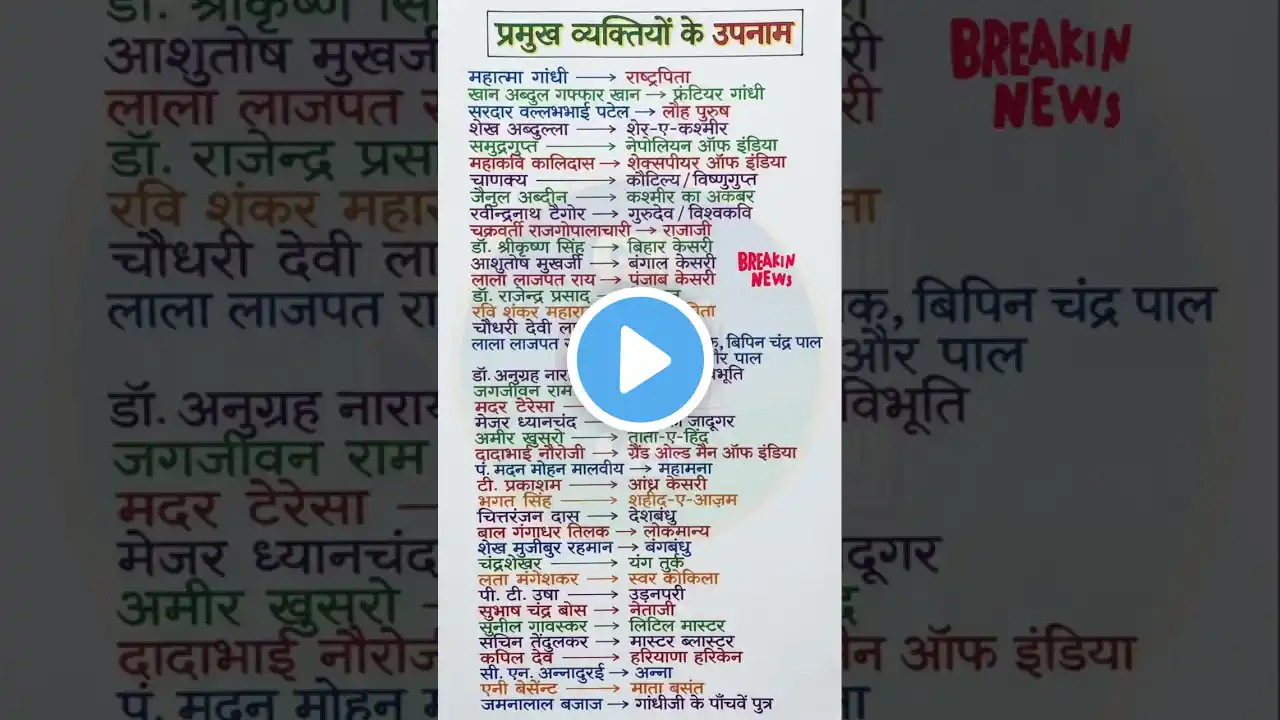 प्रमुख व्यक्तियों के उपनाम
महात्मा गांधी → राष्ट्रपिता
खान अब्दुल गफ्फार खान → फ्रंटियर गांधी
सरदार वल्लभभाई पटेल → लौह पुरुष
शेख अब्दुल्ला → शेर-ए-कश्मीर
समुद्रगुप्त → नेपोलियन ऑफ इंडिया
महाकवि कालिदास → शेक्सपीयर ऑफ इंडिया
चाणक्य → कौटिल्य/विष्णुगुप्त
जैनुल अब्दीन → कश्मीर का अकबर
रवीन्द्रनाथ टैगोर → गुरुदेव/विश्वकवि
चक्रवर्ती राजगोपालाचारी → राजाजी
डॉ. श्रीकृष्ण सिंह → बिहार केसरी
आशुतोष मुखर्जी → बंगाल केसरी
लाला लाजपत राय → पंजाब केसरी
BREAKIN NEWS
डॉ. राजेन्द्र प्रसाद
रवि शंकर महारा
चौधरी देवी ला
लाला लाजपत रा क, बिपिन चंद्र पाल
और पाल
डॉ. अनुग्रह नारा विभूति
जगजीवन राम
मदर टेरेसा
मेजर ध्यानचंद जादूगर
अमीर खुसरो → तोता-ए-हिंद
दादाभाई नौरोजी → ग्रैंड ओल्ड मैन ऑफ इंडिया
पं. मदन मोहन मालवीय → महामना
टी. प्रकाशम → आंध्र केसरी
भगत सिंह → शहीद-ए-आज़म
चित्तरंजन दास → देशबंधु
बाल गंगाधर तिलक → लोकमान्य
शेख मुजीबुर रहमान → बंगबंधु
चंद्रशेखर → यंग तुर्क
लता मंगेशकर → स्वर कोकिला
पी. टी. उषा → उड़नपरी
सुभाष चंद्र बोस → नेताजी
सुनील गावस्कर → लिटिल मास्टर
सचिन तेंदुलकर → मास्टर ब्लास्टर
कपिल देव → हरियाणा हरिकेन
सी. एन. अन्नादुरई → अन्ना
एनी बेसेंट → माता बसंत
जमनालाल बजाज → गांधीजी के पाँचवें पुत्र